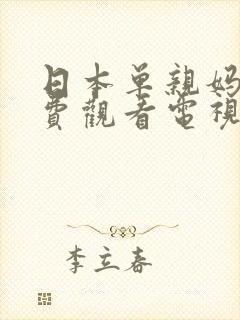 日本单親妈
費觀看電視
李立春